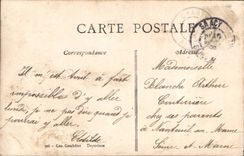 CARTE POSTALE
SAACY
Correspondance
Adresse
Il m'est tout à fait
impossible d'y aller
lundi, je ne pas dire quand je
pourrai y aller.
Mademoiselle
Blanche Arthur
Couturière
chez ses parents
à Nanteuil sur Marne
Seine et Marne